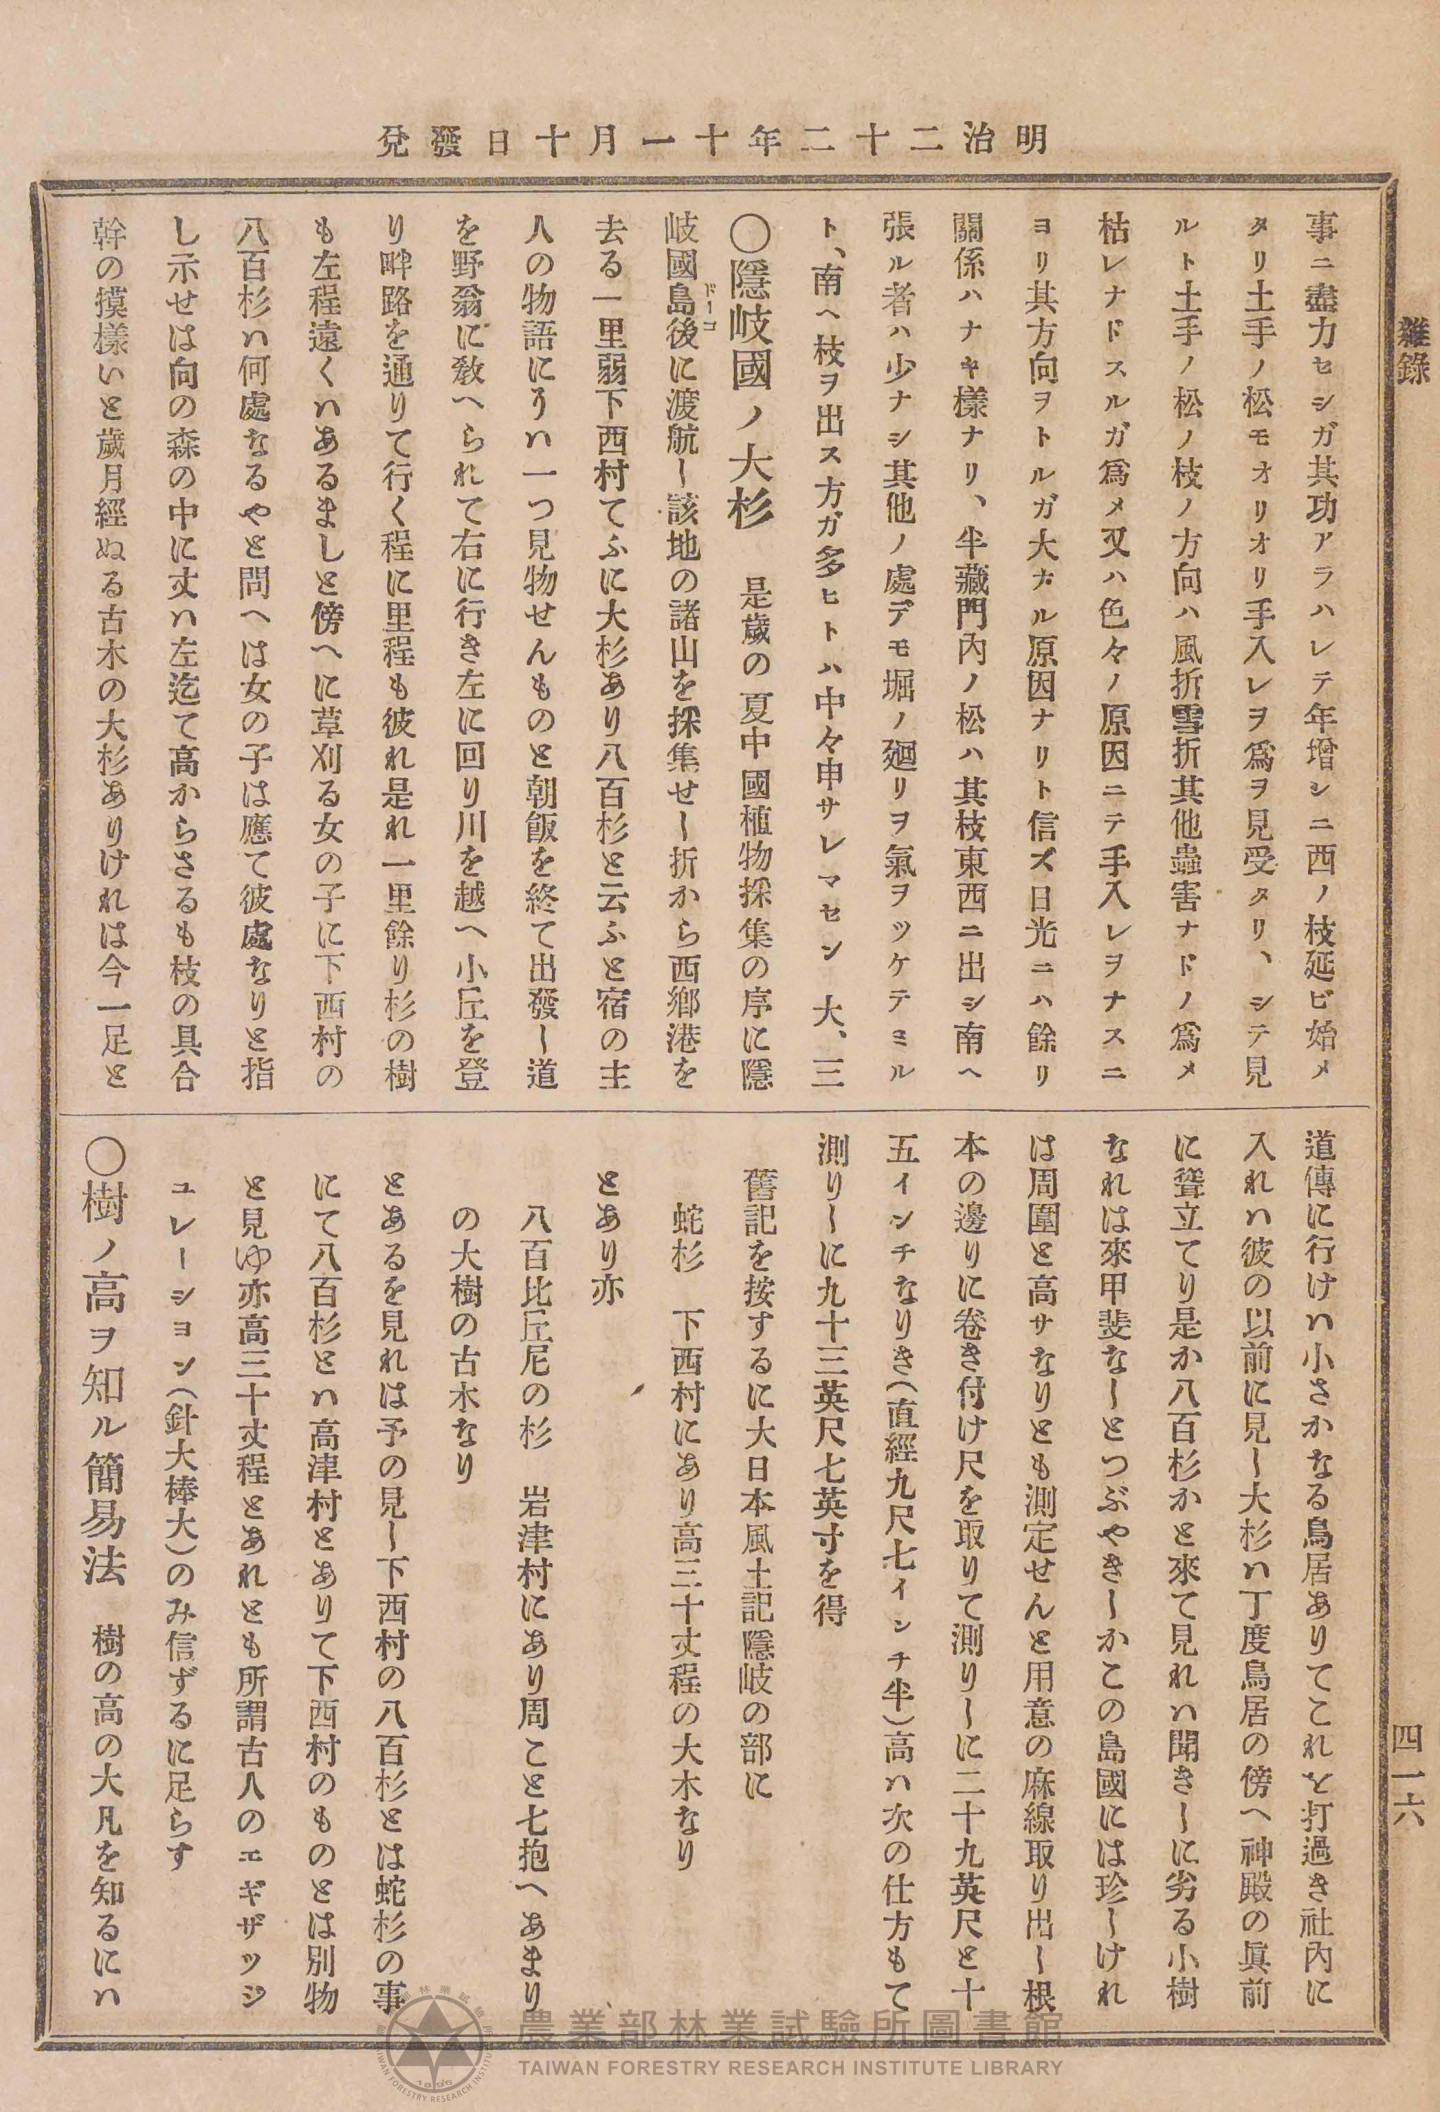 明治二十二年十一月十日發兌
雜錄
四一六
事ニ盡力セシガ其功アラハレテ年增シニ西ノ枝延ビ始メ
タリ土手ノ松モオリオリ手入レヲ爲ヲ見受タリ、シテ見
ルト土手ノ松ノ枝ノ方向ハ風折雪折其他蟲害ナドノ爲メ
枯レナドスルガ爲メ又ハ色々ノ原因ニテ手入レヲナスニ
ヨリ其方向ヲトルガ大ナル原因ナリト信ズ日光ニハ餘リ
關係ハナキ樣ナリ、半藏門內ノ松ハ其枝東西ニ出シ南ヘ
張ル者ハ少ナシ其他ノ處デモ堀ノ廻リヲ氣ヲツケテミル
ト、南ヘ枝ヲ出ス方ガ多ヒトハ中々申サレマセン 大、三
〇隱岐國ノ大杉 是歲の夏中國植物採集の序に隱
岐國島後ドーゴに渡航し該地の諸山を採集せし折から西鄕港を
去る一里弱下西村てふに大杉あり八百杉と云ふと宿の主
人の物語にうハ一つ見物せんものと朝飯を終て出發し道
を野翁に敎へられて右に行き左に回り川を越へ小丘を登
り畔路を通りて行く程に里程も彼れ是れ一里餘り杉の樹
も左程遠くハあるましと傍へに草刈る女の子に下西村の
八百杉ハ何處なるやと問へは女の子は應て彼處なりと指
し示せは向の森の中に丈ハ左迄て高からさるも枝の具合
幹の摸樣いと歲月經ぬる古木の大杉ありけれは今一足と
道傳に行けハ小さかなる鳥居ありてこれを打過き社內に
入れハ彼の以前に見し大杉ハ丁度鳥居の傍へ神殿の眞前
に聳立てり是か八百杉かと來て見れハ聞きしに劣る小樹
なれは來甲斐なしとつぶやきしかこの島國には珍しけれ
は周圍と高サなりとも測定せんと用意の麻線取り出し根
本の邊りに卷き付け尺を取りて測りしに二十九英尺と十
五インチなりき(直經九尺七インチ半)高ハ次の仕方もて
測りしに九十三英尺七英寸を得
舊記を按するに大日本風土記隱岐の部に
蛇杉 下西村にあり高三十丈程の大木なり
とあり亦
八百比丘尼の杉 岩津村にあり周こと七抱へあまり
の大樹の古木なり
とあるを見れは予の見し下西村の八百杉とは蛇杉の事
にて八百杉とハ高津村とありて下西村のものとは別物
と見ゆ亦高三十丈程とあれとも所謂古人のエギザツジ
ユレーシヨン(針大棒大)のみ信ずるに足らす
〇樹ノ高ヲ知ル簡易法 樹の高の大凡を知るにハ
農業部林業試驗所圖書館
TAIWAN FORESTRY RESEARCH INSTITUTE LIBRARY